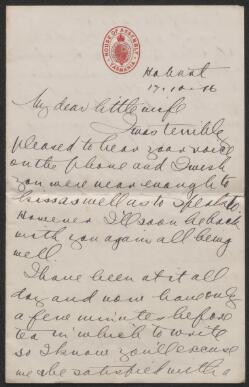 HOUSE OF ASSEMBLY
TASMANIA
Hobart
17-10-16
My dear little wife
I was terribly
pleased to hear your voice
on the phone and I wish
you were near enough to
kiss as well as to speak to
However I'll soon be back
with you again all being
well.
I have been at it all
day and now have only
a few minutes before
tea in which to write
so I know you'll excuse
me & be satisfied with a